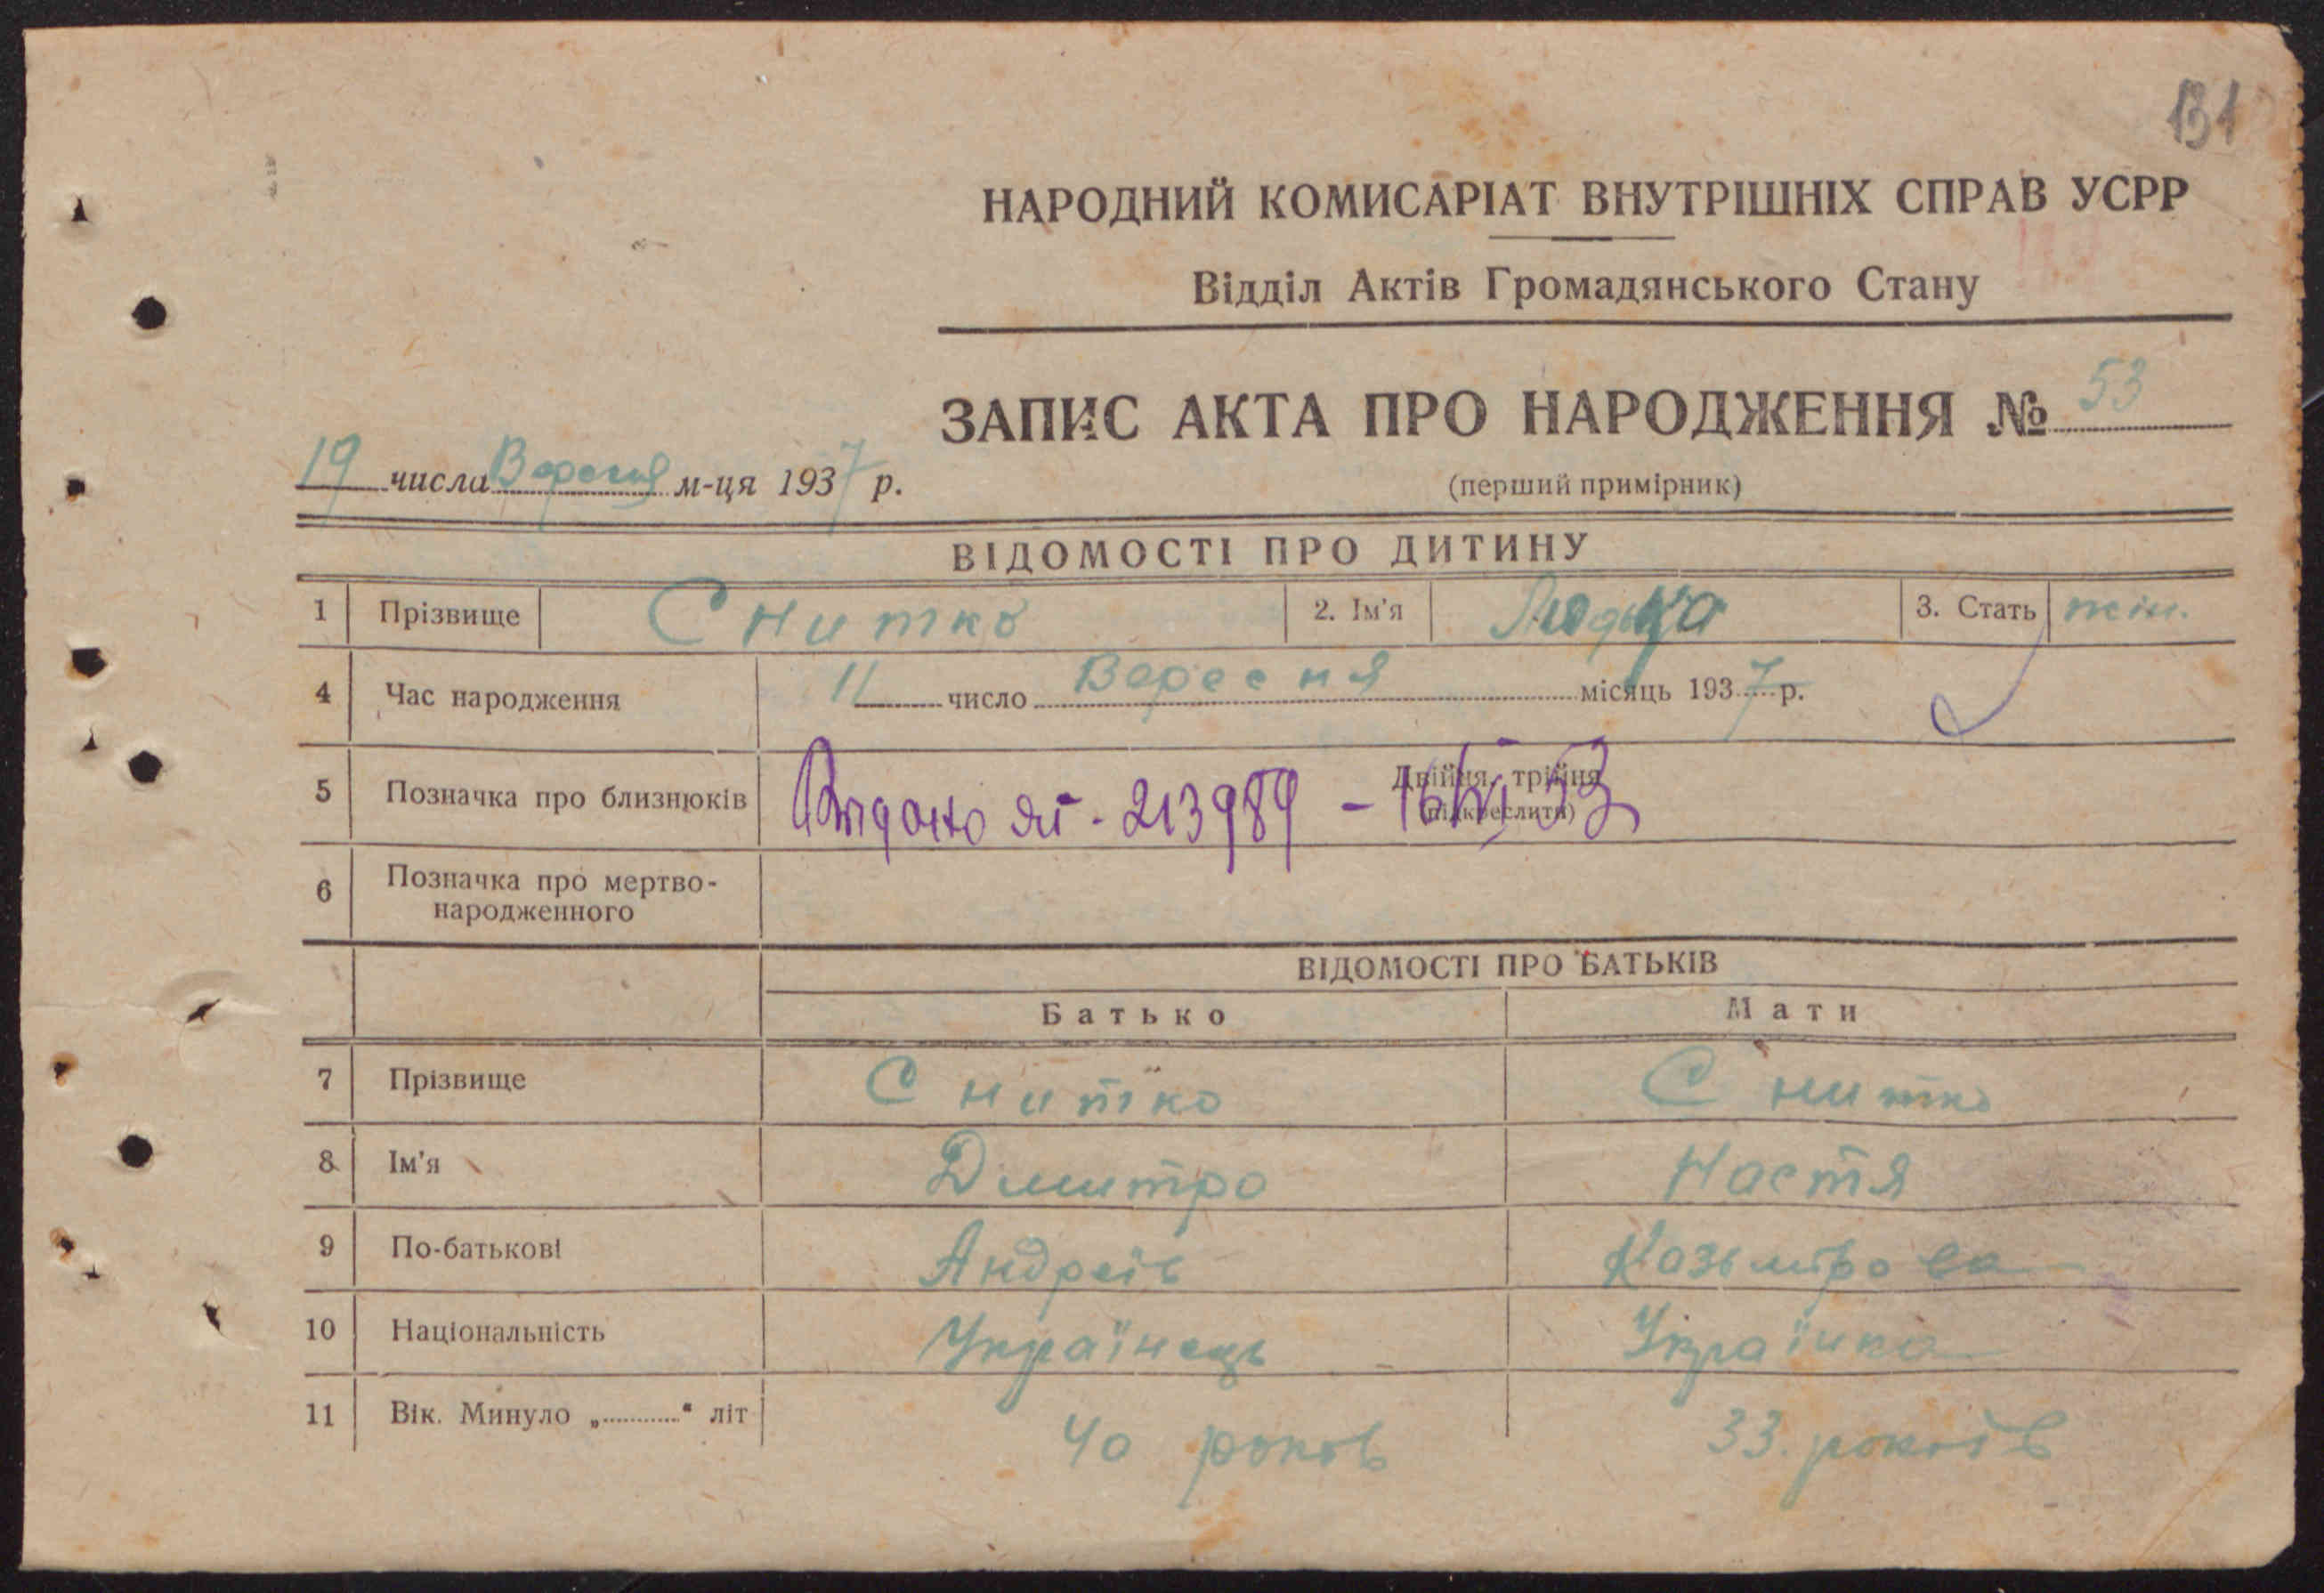 131
НАРОДНИЙ КОМИСАРІАТ ВНУТРІШНІХ СПРАВ УСРР
Відділ Актів Громадянського Стану
ЗАПИС АКТА ПРО НАРОДЖЕННЯ № 53
19 числа Вересня м-ця 1937 р.
(перший примірник)
ВІДОМОСТІ ПРО ДИТИНУ
1 Прізвище Снитко 2. Ім'я 3. Стать жін.
4 Час народження 11 число Вересня місяць 1937 р.
5 Позначка про близнюків Двійня, трійня
(підкреслити)
Видано 213989 -
6 Позначка про мертво-
народженного
ВІДОМОСТІ ПРО БАТЬКІВ
Батько Мати
7 Прізвище Снитко Снитко
8 Ім'я Дмитро Настя
9 По-батькові Андреїв
10 Національність Українець Українка
11 Вік. Минуло „............“ літ 40 років 33. років